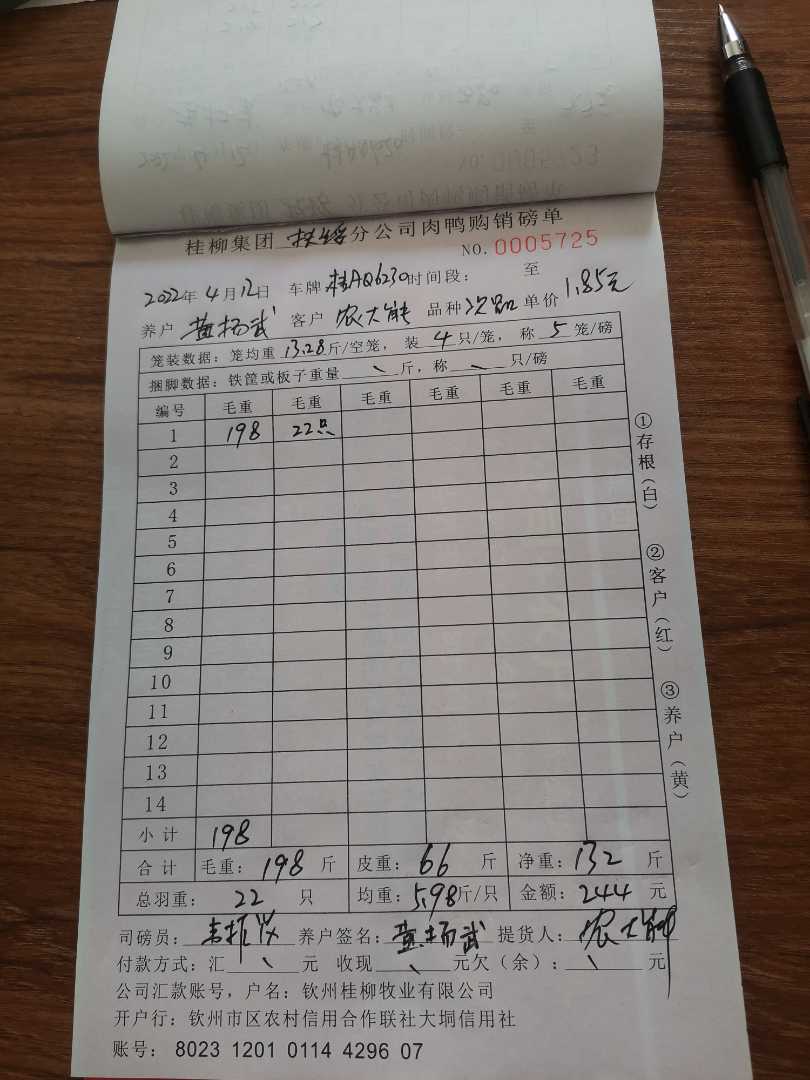 桂柳集团 扶绥 分公司肉鸭购销磅单
NO. 0005725
2022年 4月 12日 车牌 桂AQ6230 时间段: 至
养户 黄杨武 客户 农大能 品种 次品 单价 1.85元
笼装数据: 笼均重 13.28 斤/空笼, 装 4 只/笼, 称 5 笼/磅
捆脚数据: 铁筐或板子重量 \ 斤, 称 \ 只/磅
编号 毛重 毛重 毛重 毛重 毛重 毛重
1 198 22只
2
3
4
5
6
7
8
9
10
11
12
13
14
小计 198
合计 毛重: 198 斤 皮重: 66 斤 净重: 132 斤
总羽重: 22 只 均重: 5.98斤/只 金额: 244 元
司磅员: 养户签名: 黄杨武 提货人: 农大能
付款方式: 汇 \ 元 收现 \ 元欠(余): \ 元
公司汇款账号, 户名: 钦州桂柳牧业有限公司
开户行: 钦州市区农村信用合作联社大垌信用社
账号: 8023 1201 0114 4296 07
①存根(白)
②客户(红)
③养户(黄)